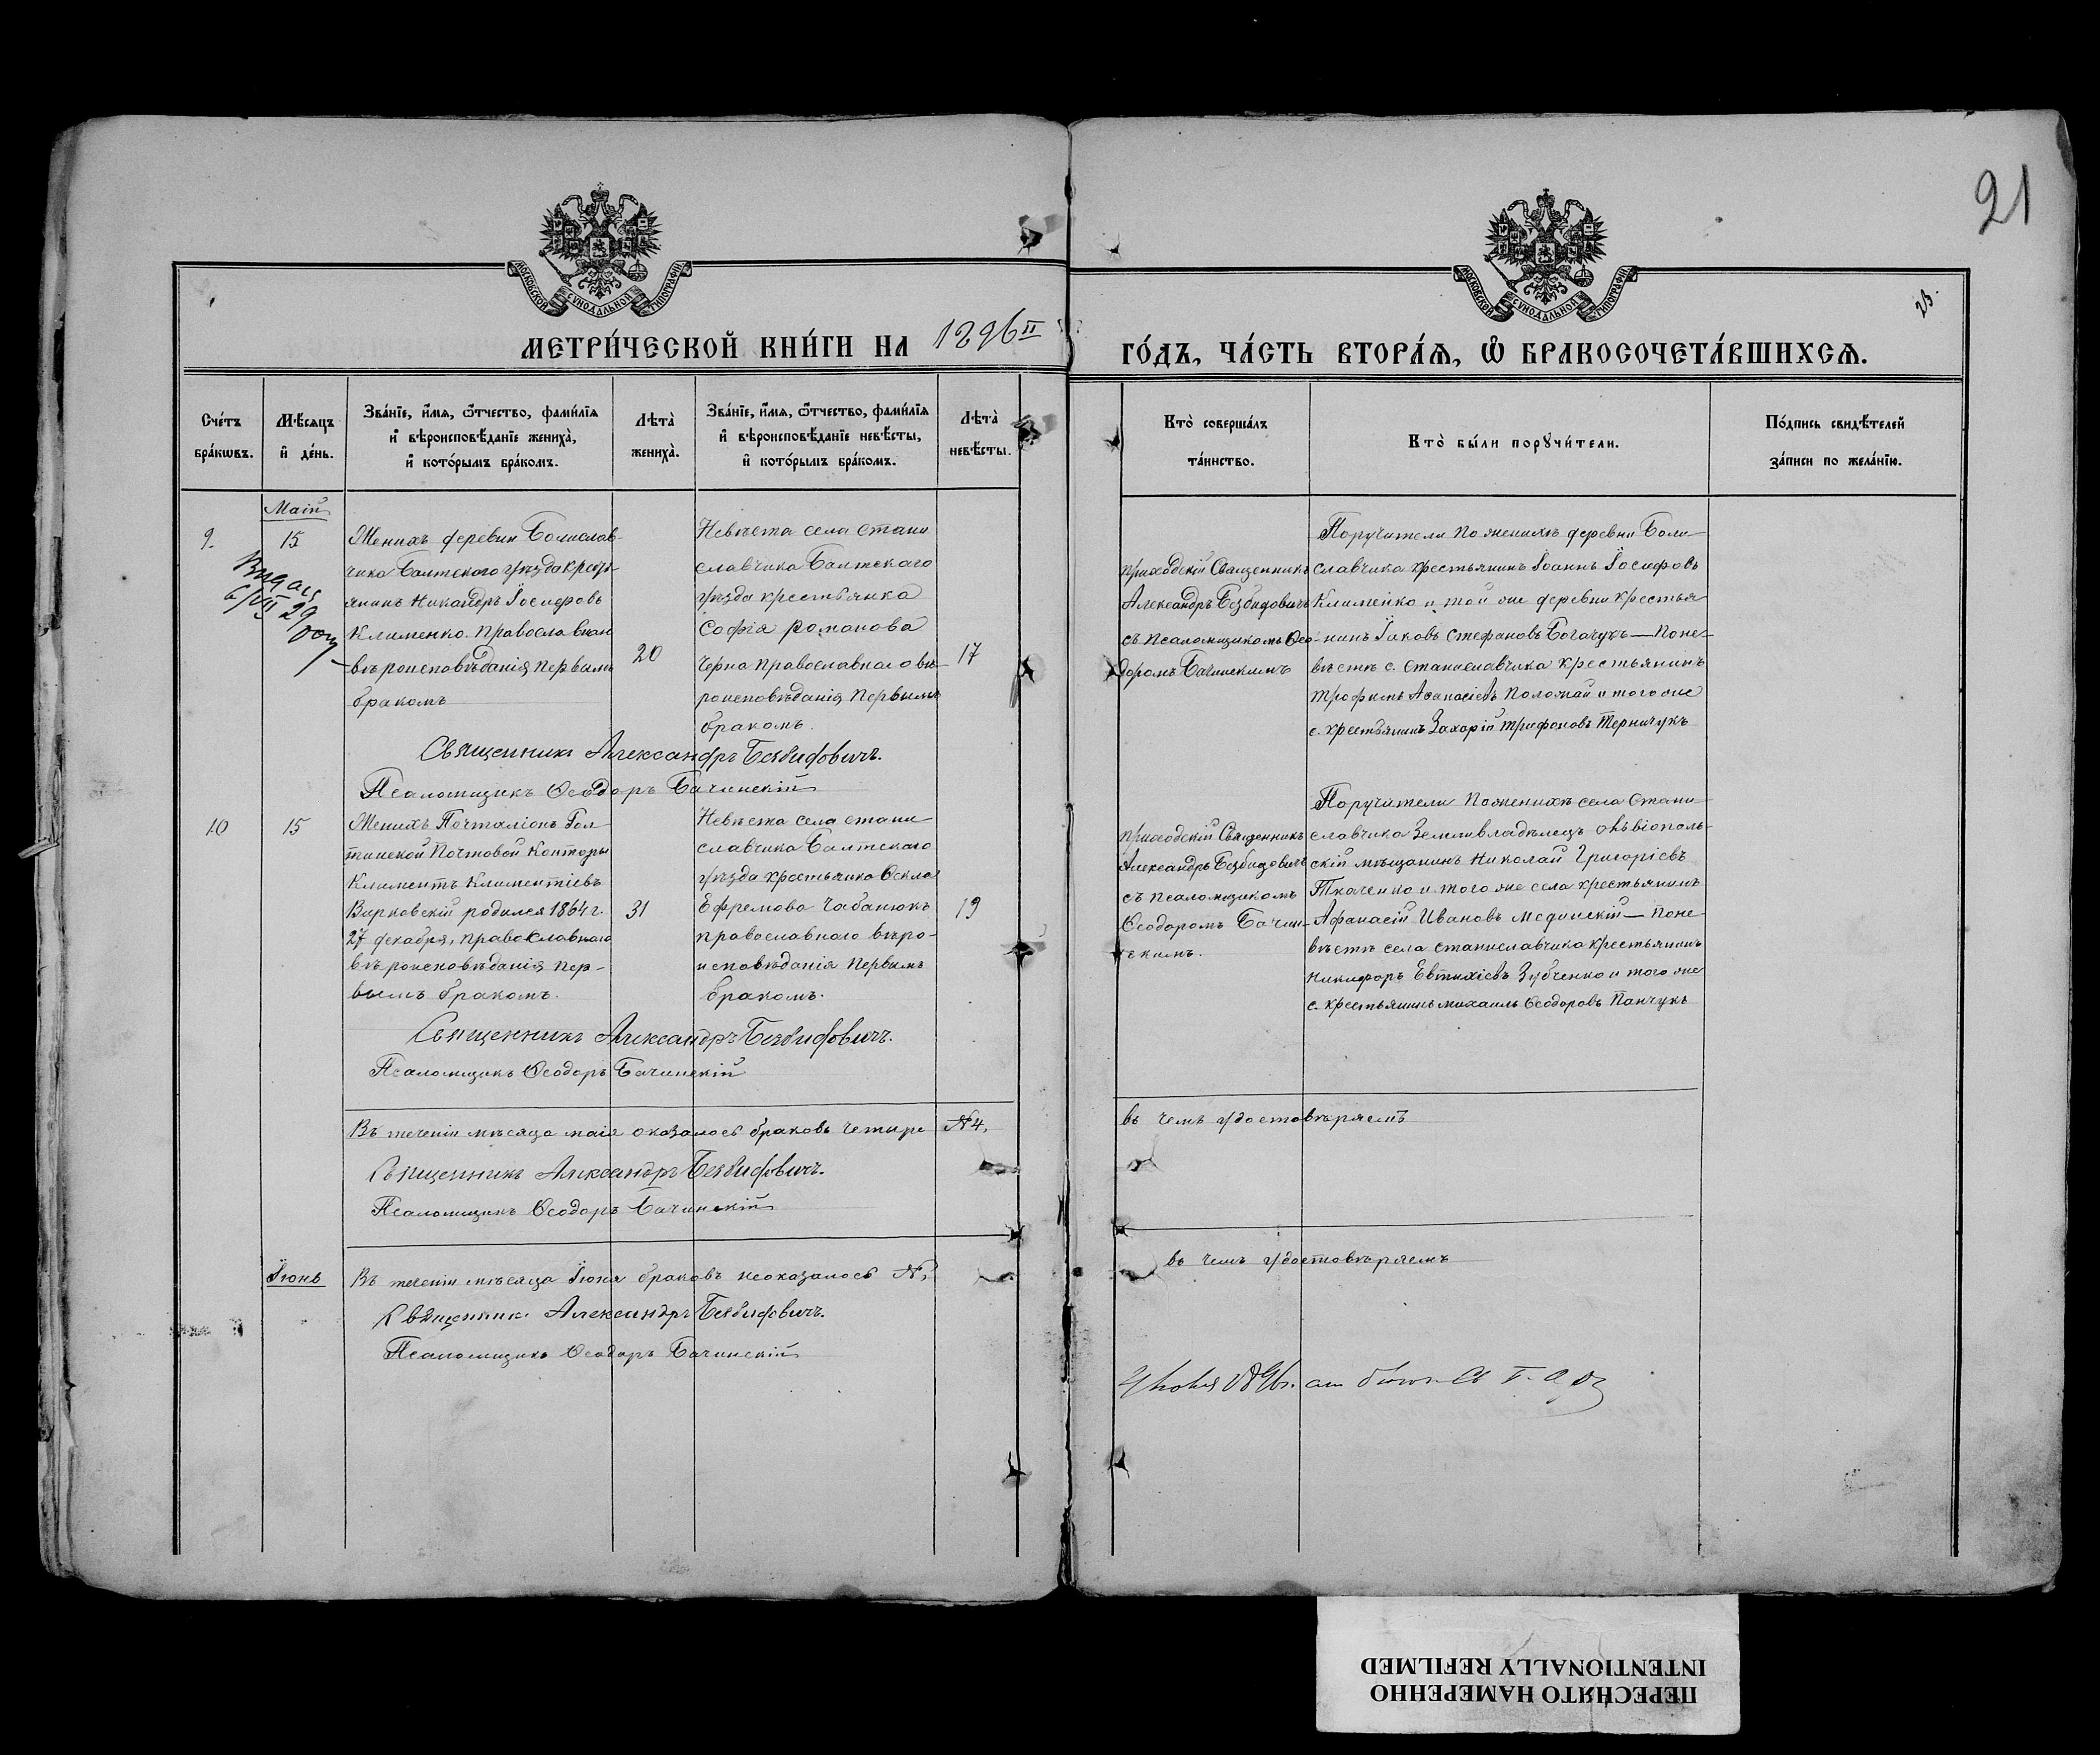 21
23.
МОСКОВСКОЙ СѴНОДАЛЬНОЙ ТИПОГРАФІИ
МОСКОВСКОЙ СѴНОДАЛЬНОЙ ТИПОГРАФІИ
МЕТРИ́ЧЕСКОЙ КНИ́ГИ НА 1896
ГО́ДЪ, ЧА́СТЬ ВТОРА́Ѧ, Ѽ БРАКОСОЧЕТА́ВШИХСѦ.
Сче́тъ бра́кѡвъ.
Мѣ́сѧцъ и҆ де́нь.
Зва́нїе, и҆́мѧ, ѻ҆́тчество, фамі́лїѧ
и҆ вѣроисповѣ́данїе жениха̀,
и҆ кото́рымъ бра́комъ.
Лѣта̀ жениха̀.
Зва́нїе, и҆́мѧ, ѻ҆́тчество, фамі́лїѧ
и҆ вѣроисповѣ́данїе невѣ́сты,
и҆ кото́рымъ бра́комъ.
Лѣта̀ невѣ́сты.
Кто̀ соверша́лъ
та́инство.
Кто̀ бы́ли порꙋчи́тели.
По́дпись свидѣ́телей
за́писи по жела́нїю.
Маій
9.
15
Женихъ деревни Болислав-
чика Балтскаго уѣзда крестъ-
янинъ Никандръ Іосифовъ
Клименко. Православнаго
вѣроисповѣданія первымъ
бракомъ
20
Невѣста села Стани
славчика Балтскаго
уѣзда крестьянка
Софія Романова
Черна православнаго вѣ-
роисповѣданія первымъ
бракомъ.
17
Приходскій Священникъ
Александръ Безбидовичъ
съ псаломщикомъ Ѳео-
доромъ Бачинскимъ
Поручители по женихѣ деревни Боли-
славчика крестьянинъ Іоаннъ Іосифовъ
Клименко и той же деревни крестья-
нинъ Іаковъ Стефановъ Богачукъ — По не-
вѣстѣ с. Станиславчика крестьянинъ
Трофимъ Аѳанасіевъ Поломай и того же
с. крестьянинъ Захарій Трифоновъ Терничукъ
Священникъ Александръ Безбидовичъ.
Псаломщикъ Ѳеодоръ Бачинскій
10
15
Женихъ Почталіонъ Гол-
тинской Почтовой Конторы
Климентъ Климентіевъ
Вирковскій родился 1864 г.
27 декабря, православнаго
вѣроисповѣданія пер-
вымъ бракомъ.
31
Невѣста села Стани-
славчика Балтскаго
уѣзда крестьянка Ѳекла
Ефремова Чабанюкъ
православнаго вѣро-
исповѣданія первымъ
бракомъ.
19
Приходскій Священникъ
Александръ Безбидовичъ
съ псаломщикомъ
Ѳеодоромъ Бачин-
скимъ.
Поручители по женихѣ села Стани-
славчика Землевладѣлецъ Овѣіополь-
скій мѣщанинъ Николай Григоріевъ
Ткаченко и того же села крестьянинъ
Афанасій Ивановъ Мединскій — По не-
вѣстѣ села Станиславчика крестьянинъ
Никифоръ Евтихіевъ Зубченко и того же
с. крестьянинъ Михаилъ Ѳеодоровъ Панчукъ
Священникъ Александръ Безбидовичъ.
Псаломщикъ Ѳеодоръ Бачинскій
Въ теченіи мѣсяца маія оказалось браковъ четыре №4.
въ чемъ удостовѣряемъ
Священникъ Александръ Безбидовичъ.
Псаломщикъ Ѳеодоръ Бачинскій
Іюнь
Въ теченіи мѣсяца Іюня браковъ неоказалось №
въ чемъ удостовѣряемъ
Священникъ Александръ Безбидовичъ.
Псаломщикъ Ѳеодоръ Бачинскій
ПЕРЕСНЯТО НАМЕРЕННО
INTENTIONALLY REFILMED